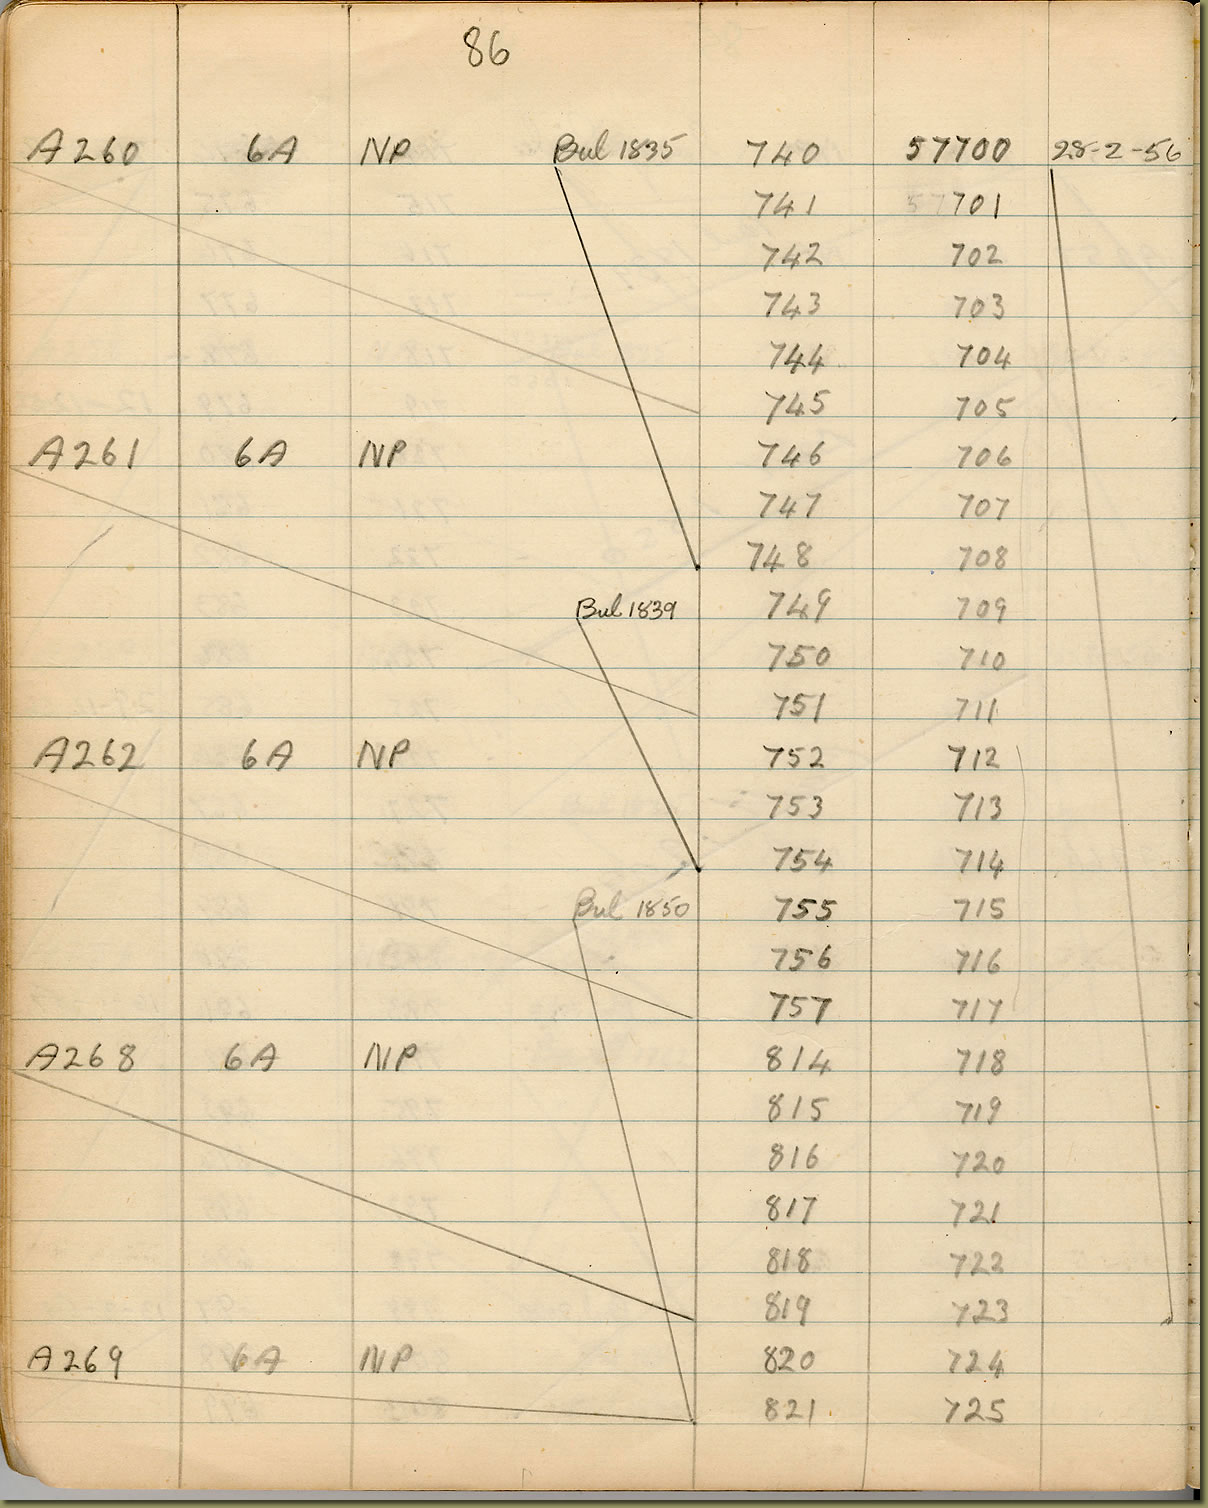 86
A260 6A NP Bul 1835 740 57700 28-2-56
741 57701
742 702
743 703
744 704
745 705
A261 6A NP 746 706
747 707
748 708
Bul 1839 749 709
750 710
751 711
A262 6A NP 752 712
753 713
754 714
Bul 1850 755 715
756 716
757 717
A268 6A NP 814 718
815 719
816 720
817 721
818 722
819 723
A269 6A NP 820 724
821 725